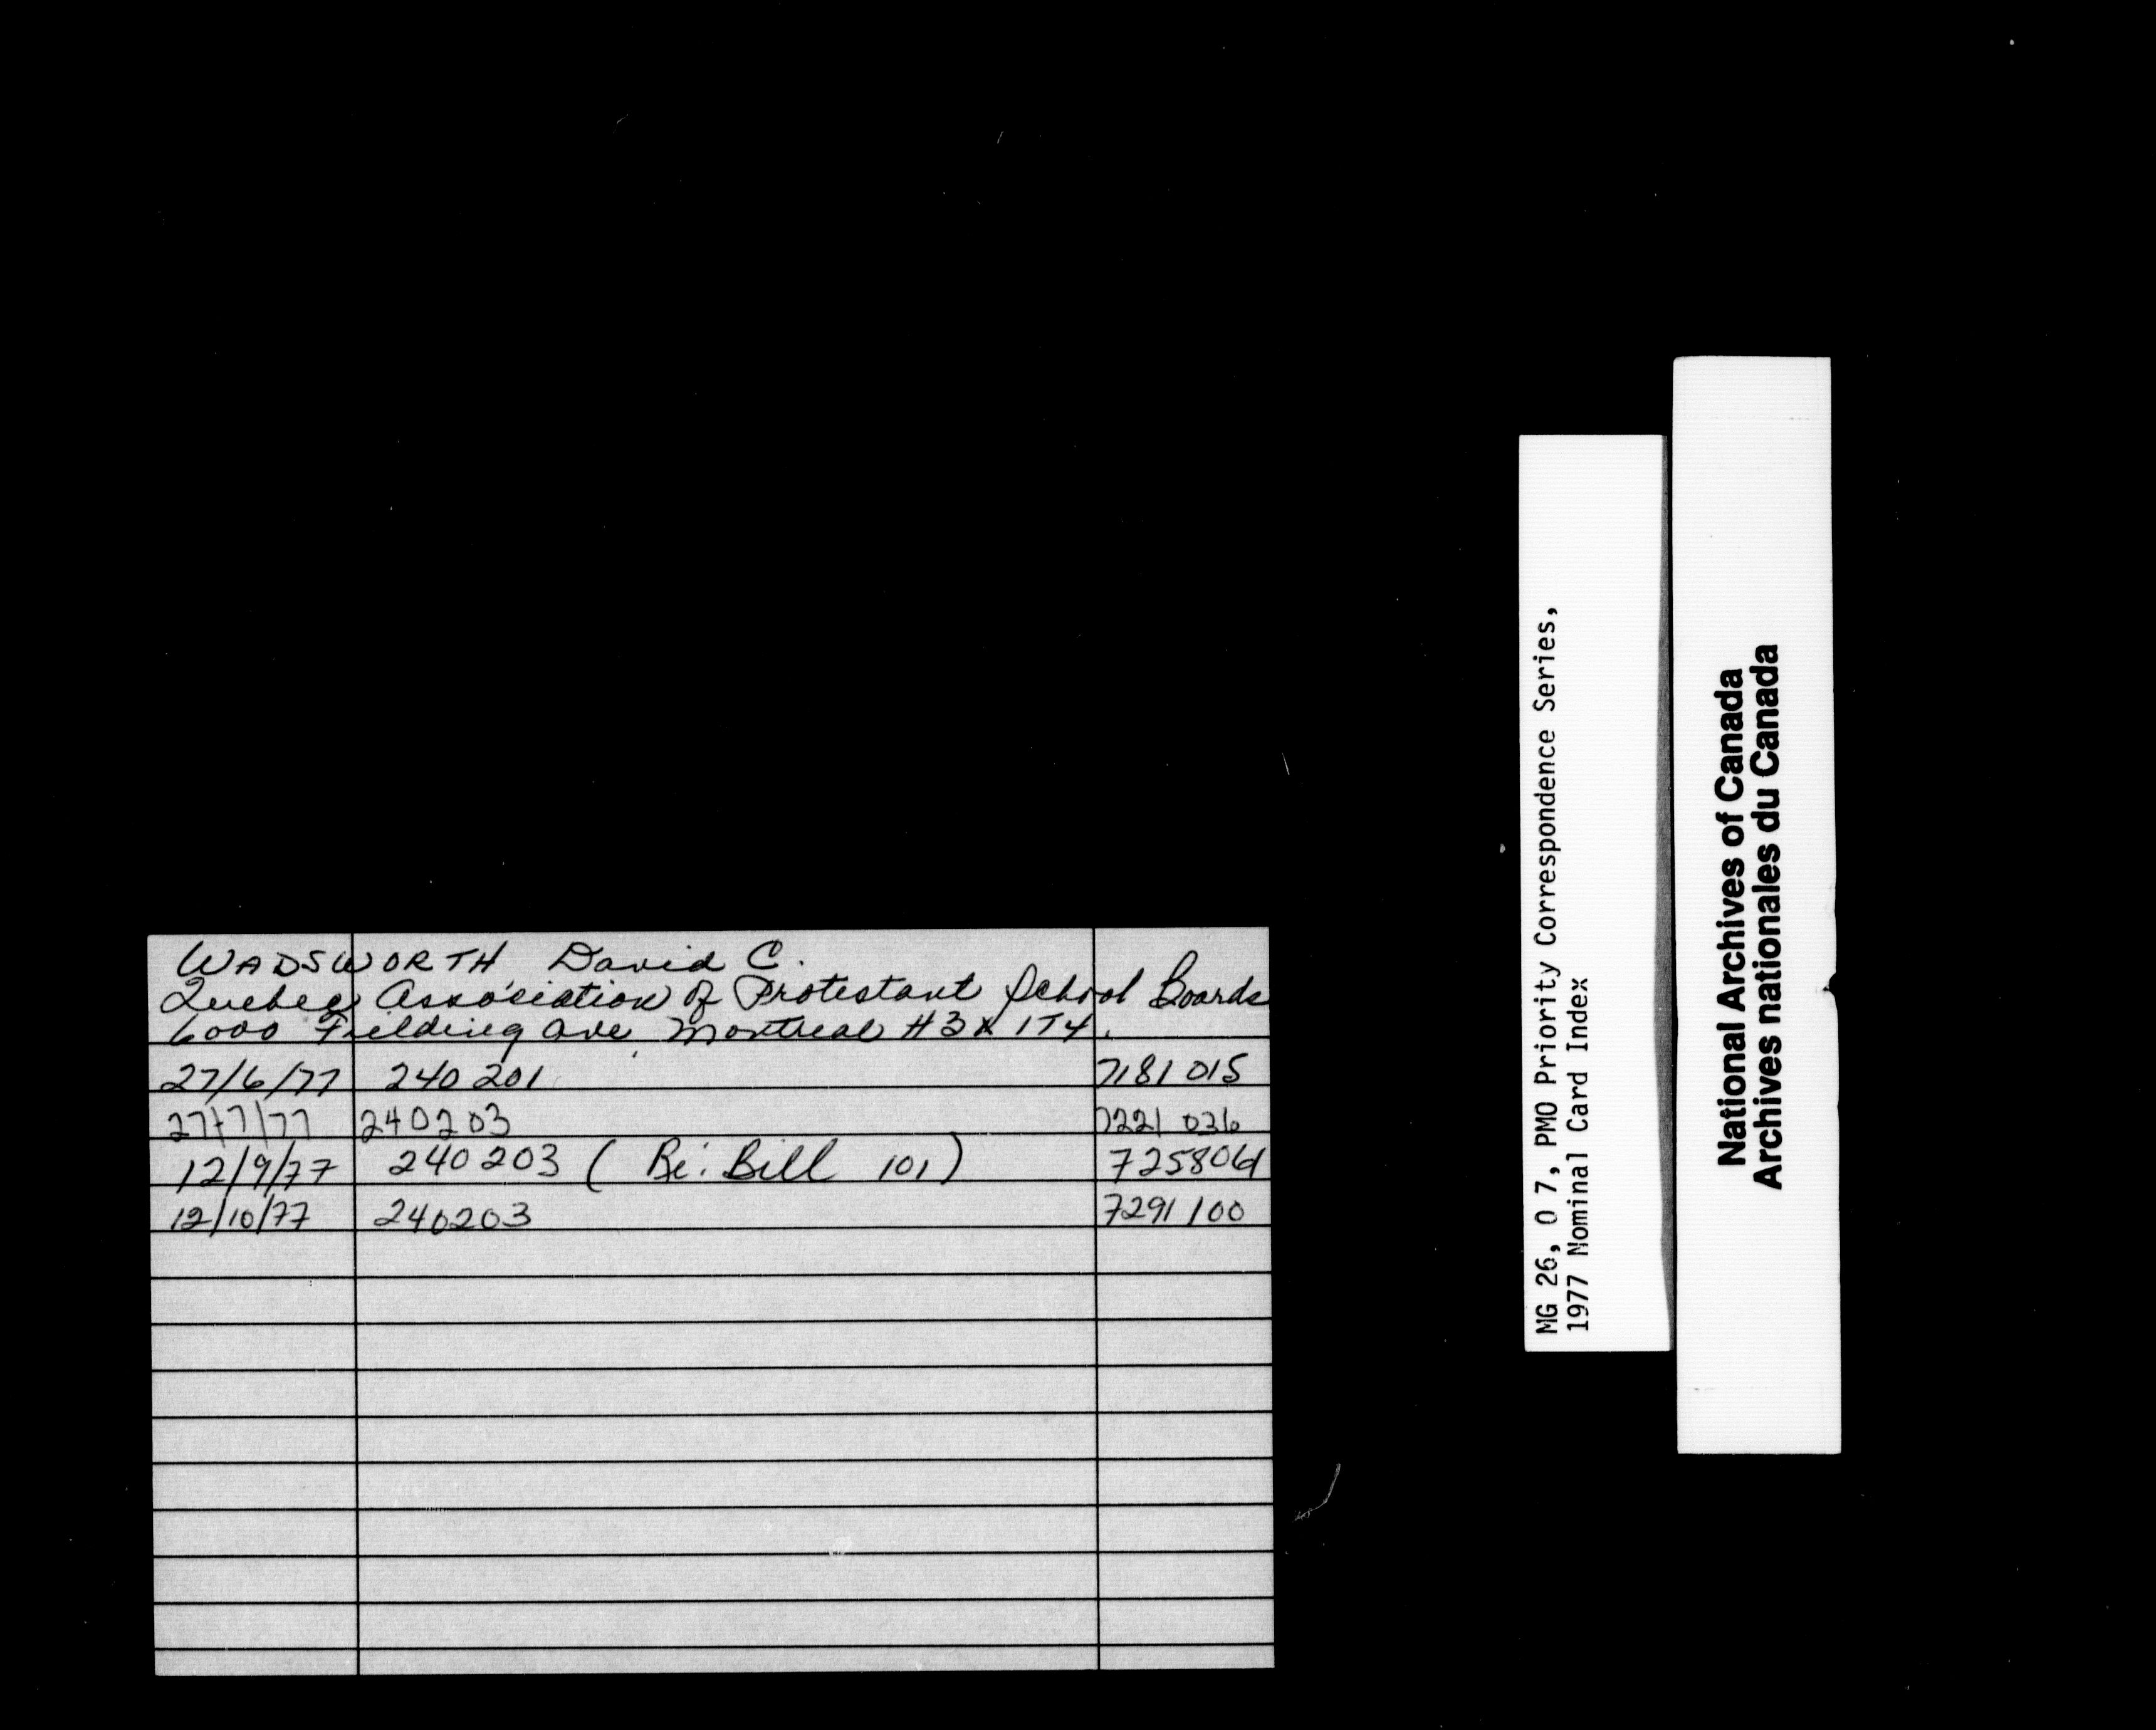 WADSWORTH David C.
Quebec Association of Protestant School Boards
6000 Fielding Ave Montreal H3X 1T4.
27/6/77 240 201 7181 015
27/7/77 240203 7221 036
12/9/77 240 203 ( Re: Bill 101) 7258061
12/10/77 240203 7291 100
MG 26, O 7, PMO Priority Correspondence Series,
1977 Nominal Card Index
National Archives of Canada
Archives nationales du Canada